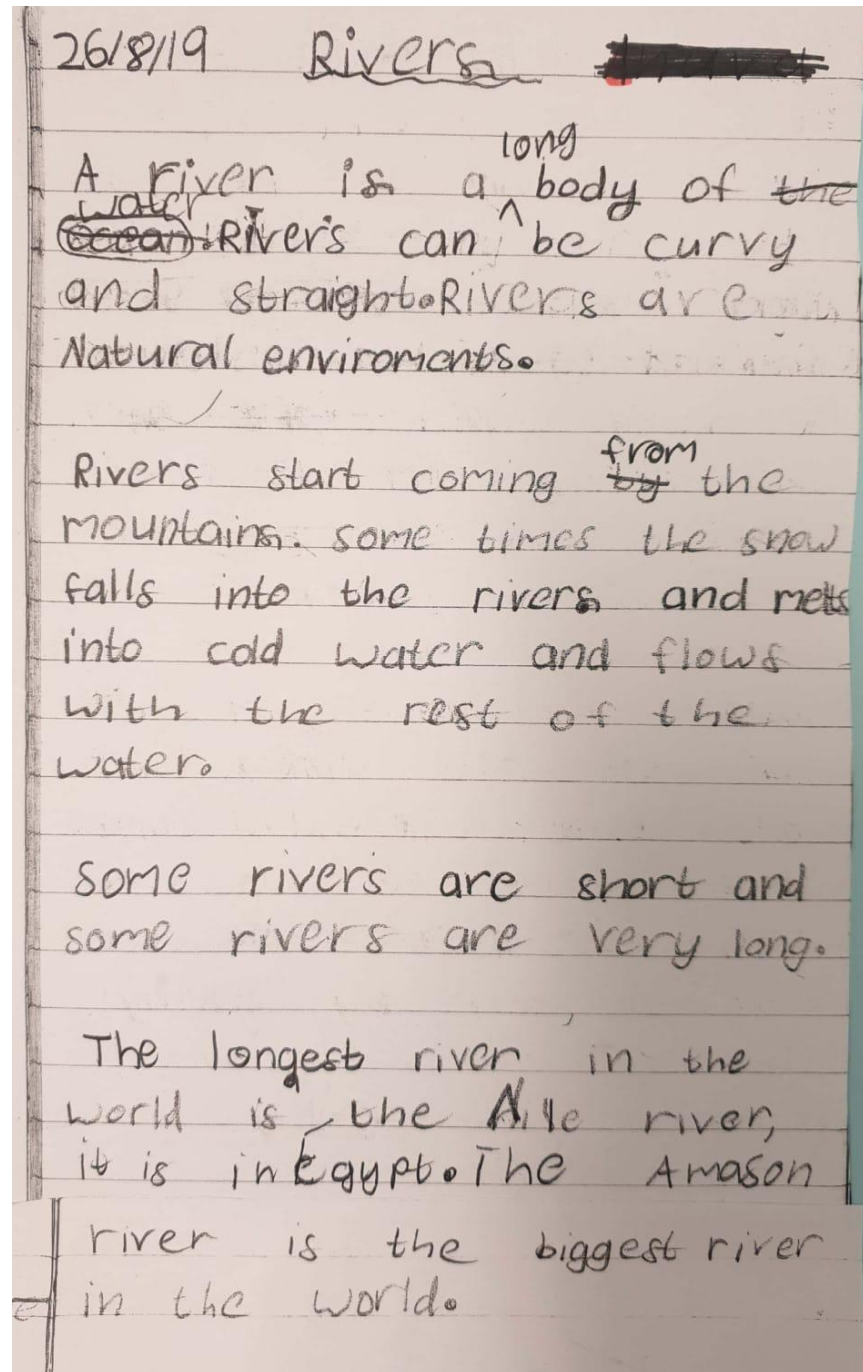 26/8/19 Rivers
A river is a long body of the
water ocean. Rivers can be curvy
and straight. Rivers are
Natural enviroments.
Rivers start coming by from the
mountains. some times the snow
falls into the rivers and melts
into cold water and flows
with the rest of the
water.
Some rivers are short and
some rivers are very long.
The longest river in the
world is the Nile river,
it is in Egypt. The Amason
river is the biggest river
in the world.